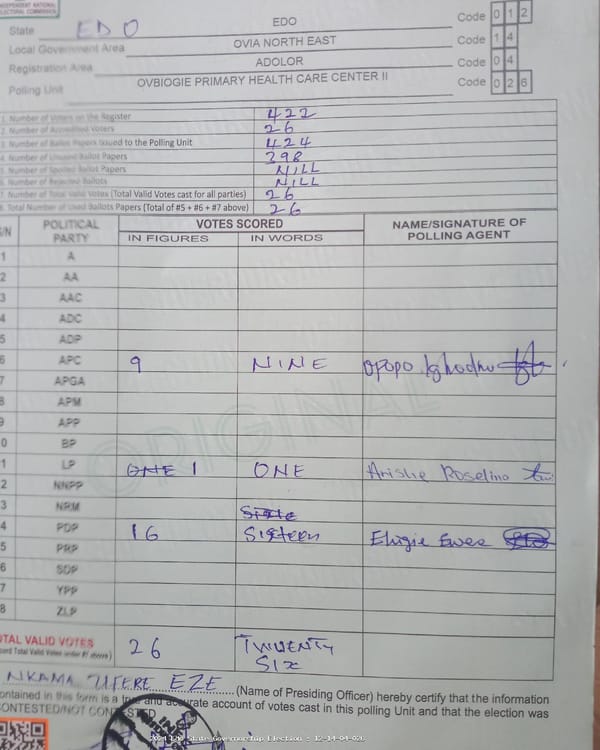 INDEPENDENT NATIONAL
ELECTORAL COMMISSION
State EDO EDO Code 0 1 2
Local Government Area OVIA NORTH EAST Code 1 4
Registration Area ADOLOR Code 0 4
Polling Unit OVBIOGIE PRIMARY HEALTH CARE CENTER II Code 0 2 6
1. Number of Voters on the Register 422
2. Number of Accredited Voters 26
3. Number of Ballot Papers Issued to the Polling Unit 424
4. Number of Unused Ballot Papers 398
5. Number of Spoiled Ballot Papers NILL
6. Number of Rejected Ballots NILL
7. Number of Total Valid Votes (Total Valid Votes cast for all parties) 26
8. Total Number of Used Ballots Papers (Total of #5 + #6 + #7 above) 26
S/N POLITICAL PARTY VOTES SCORED NAME/SIGNATURE OF POLLING AGENT
IN FIGURES IN WORDS
1 A
2 AA
3 AAC
4 ADC
5 ADP
6 APC 9 NINE OPOPO Ighodru
7 APGA
8 APM
9 APP
0 BP
ORIGINAL
1 LP ONE 1 ONE Arishe Roselino
2 NNPP
3 NRM
4 PDP 16 Sixte Sixteen Ehigie Ewee
5 PRP
6 SDP
7 YPP
8 ZLP
TOTAL VALID VOTES 26 TWUENTY SIX
(Record Total Valid Votes under #7 above)
NKAMA UFERE EZE (Name of Presiding Officer) hereby certify that the information
contained in this form is a true and accurate account of votes cast in this polling Unit and that the election was
CONTESTED/NOT CONTESTED
2024 Edo State Governorship Election - 12-14-04-026